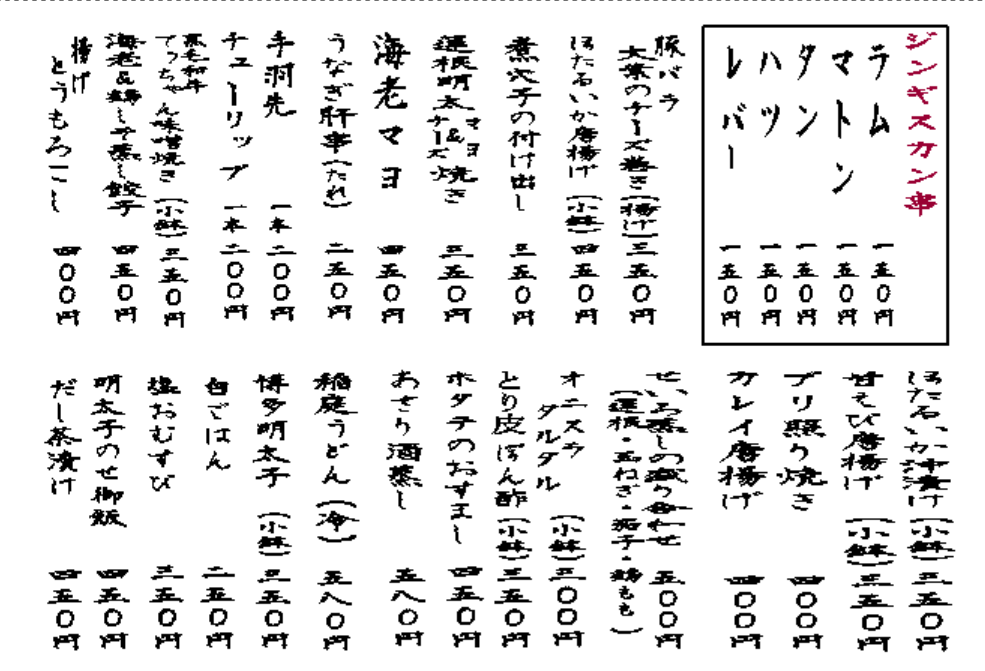 ジンギスカン串
ラム 一五〇円
マトン 一五〇円
タン 一五〇円
ハツ 一五〇円
レバー 一五〇円
豚バラ
大葉のチーズ巻き(揚げ) 三五〇円
ほたるいか唐揚げ(小鉢) 四五〇円
煮穴子の付け出し 三五〇円
蓮根明太&マヨ
チーズ焼き 三五〇円
海老マヨ 四五〇円
うなぎ肝串(たれ) 二五〇円
手羽先 一本 二〇〇円
チューリップ 一本 二〇〇円
黒毛和牛
てっちゃん味噌焼き(小鉢) 三五〇円
海老&鶏しそ蒸し餃子 四五〇円
揚げ
とうもろこし 四〇〇円
ほたるいか沖漬け(小鉢) 三五〇円
甘えび唐揚げ(小鉢) 三五〇円
ブリ照り焼き 四〇〇円
カレイ唐揚げ 四〇〇円
せいろ蒸しの盛り合わせ 五〇〇円
(蓮根・玉ねぎ・茄子・鶏もも)
オニスラ
タルタル(小鉢) 三〇〇円
とり皮ぽん酢(小鉢) 三五〇円
ホタテのおすまし 四五〇円
あさり酒蒸し 五八〇円
稲庭うどん(冷) 五八〇円
博多明太子(小鉢) 三五〇円
白ごはん 二五〇円
塩おむすび 三五〇円
明太子のせ御飯 四五〇円
だし茶漬け 四五〇円